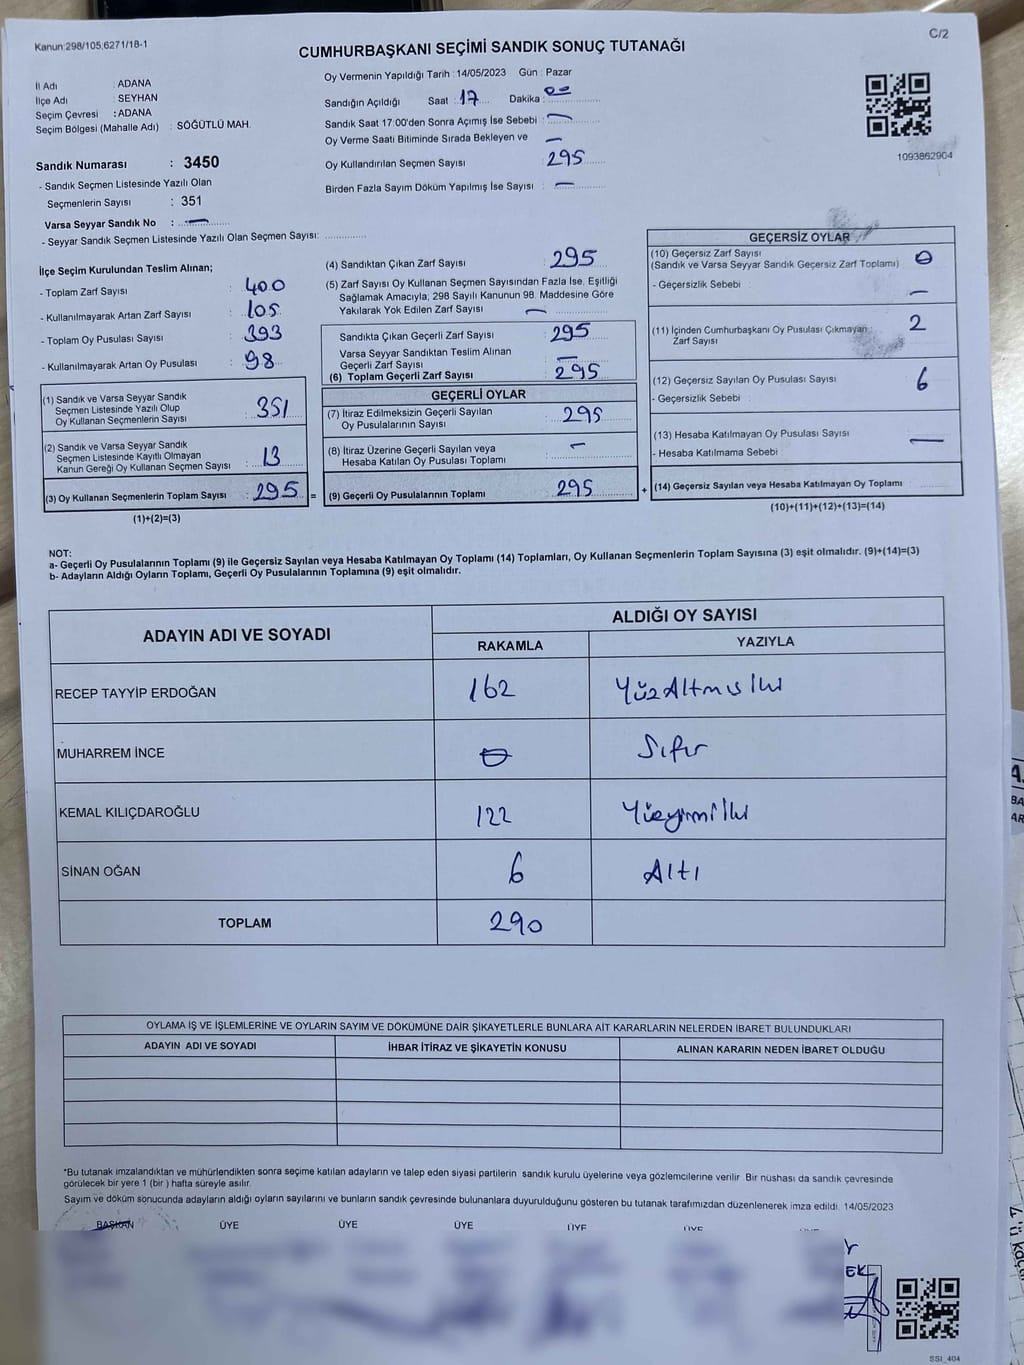 Kanun:298/105;6271/18-1
C/2
CUMHURBAŞKANI SEÇİMİ SANDIK SONUÇ TUTANAĞI
İl Adı : ADANA
İlçe Adı : SEYHAN
Seçim Çevresi : ADANA
Seçim Bölgesi (Mahalle Adı) : SÖĞÜTLÜ MAH.
Oy Vermenin Yapıldığı Tarih : 14/05/2023 Gün : Pazar
Sandığın Açıldığı Saat : 17 Dakika : 00
Sandık Saat 17:00'den Sonra Açımış İse Sebebi : —
Oy Verme Saati Bitiminde Sırada Bekleyen ve —
Oy Kullandırılan Seçmen Sayısı : 295
Birden Fazla Sayım Döküm Yapılmış İse Sayısı : —
1093862904
Sandık Numarası : 3450
- Sandık Seçmen Listesinde Yazılı Olan
Seçmenlerin Sayısı : 351
Varsa Seyyar Sandık No : —
- Seyyar Sandık Seçmen Listesinde Yazılı Olan Seçmen Sayısı:
İlçe Seçim Kurulundan Teslim Alınan;
- Toplam Zarf Sayısı : 400
- Kullanılmayarak Artan Zarf Sayısı : 105
- Toplam Oy Pusulası Sayısı : 393
- Kullanılmayarak Artan Oy Pusulası : 98
(1) Sandık ve Varsa Seyyar Sandık
Seçmen Listesinde Yazılı Olup
Oy Kullanan Seçmenlerin Sayısı : 351
(2) Sandık ve Varsa Seyyar Sandık
Seçmen Listesinde Kayıtlı Olmayan
Kanun Gereği Oy Kullanan Seçmen Sayısı : 13
(3) Oy Kullanan Seçmenlerin Toplam Sayısı : 295 =
(1)+(2)=(3)
(4) Sandıktan Çıkan Zarf Sayısı : 295
(5) Zarf Sayısı Oy Kullanan Seçmen Sayısından Fazla İse, Eşitliği
Sağlamak Amacıyla; 298 Sayılı Kanunun 98. Maddesine Göre
Yakılarak Yok Edilen Zarf Sayısı : —
Sandıkta Çıkan Geçerli Zarf Sayısı : 295
Varsa Seyyar Sandıktan Teslim Alınan
Geçerli Zarf Sayısı : —
(6) Toplam Geçerli Zarf Sayısı : 295
GEÇERLİ OYLAR
(7) İtiraz Edilmeksizin Geçerli Sayılan
Oy Pusulalarının Sayısı : 295
(8) İtiraz Üzerine Geçerli Sayılan veya
Hesaba Katılan Oy Pusulası Toplamı : —
(9) Geçerli Oy Pusulalarının Toplamı : 295 +
GEÇERSİZ OYLAR
(10) Geçersiz Zarf Sayısı
(Sandık ve Varsa Seyyar Sandık Geçersiz Zarf Toplamı) : 0
- Geçersizlik Sebebi : —
(11) İçinden Cumhurbaşkanı Oy Pusulası Çıkmayan :
Zarf Sayısı 2
(12) Geçersiz Sayılan Oy Pusulası Sayısı : 6
- Geçersizlik Sebebi :
(13) Hesaba Katılmayan Oy Pusulası Sayısı : —
- Hesaba Katılmama Sebebi :
(14) Geçersiz Sayılan veya Hesaba Katılmayan Oy Toplamı
(10)+(11)+(12)+(13)=(14)
NOT:
a- Geçerli Oy Pusulalarının Toplamı (9) ile Geçersiz Sayılan veya Hesaba Katılmayan Oy Toplamı (14) Toplamları, Oy Kullanan Seçmenlerin Toplam Sayısına (3) eşit olmalıdır. (9)+(14)=(3)
b- Adayların Aldığı Oyların Toplamı, Geçerli Oy Pusulalarının Toplamına (9) eşit olmalıdır.
ADAYIN ADI VE SOYADI
ALDIĞI OY SAYISI
RAKAMLA YAZIYLA
RECEP TAYYİP ERDOĞAN 162 YüzAltmışİki
MUHARREM İNCE 0 Sıfır
KEMAL KILIÇDAROĞLU 122 Yüzyirmiİki
SİNAN OĞAN 6 Altı
TOPLAM 290
OYLAMA İŞ VE İŞLEMLERİNE VE OYLARIN SAYIM VE DÖKÜMÜNE DAİR ŞİKAYETLERLE BUNLARA AİT KARARLARIN NELERDEN İBARET BULUNDUKLARI
ADAYIN ADI VE SOYADI İHBAR İTİRAZ VE ŞİKAYETİN KONUSU ALINAN KARARIN NEDEN İBARET OLDUĞU
*Bu tutanak imzalandıktan ve mühürlendikten sonra seçime katılan adayların ve talep eden siyasi partilerin sandık kurulu üyelerine veya gözlemcilerine verilir. Bir nüshası da sandık çevresinde
görülecek bir yere 1 (bir) hafta süreyle asılır.
Sayım ve döküm sonucunda adayların aldığı oyların sayılarını ve bunların sandık çevresinde bulunanlara duyurulduğunu gösteren bu tutanak tarafımızdan düzenlenerek imza edildi. 14/05/2023
BAŞKAN ÜYE ÜYE ÜYE ÜYE ÜYE
EK
SSI_404